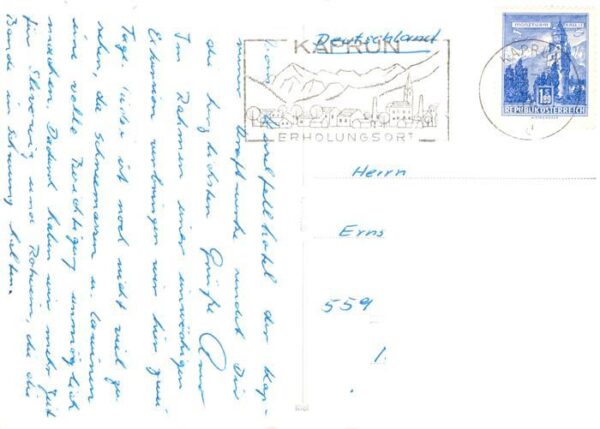 Deutschland
KAPRUN
ERHOLUNGSORT
KAPRUN
MÜNZTURM
1.80
REPUBLIK ÖSTERREICH
Herrn
Erns
559
1
Vom der Kap-
runer Kraftwerke sendet Dir
die herzlichsten Grüße Arno
Im Rahmen einer einwöchigen
Exkursion verbringen wir hier zwei
Tage. Leider ist noch nicht viel zu
sehen, die Schneemassen u. Lawinen
eine volle Besichtigung unmöglich
machen. Dadurch haben wir mehr Zeit
für und Rotwein, die die
Bande in Schwung halten.